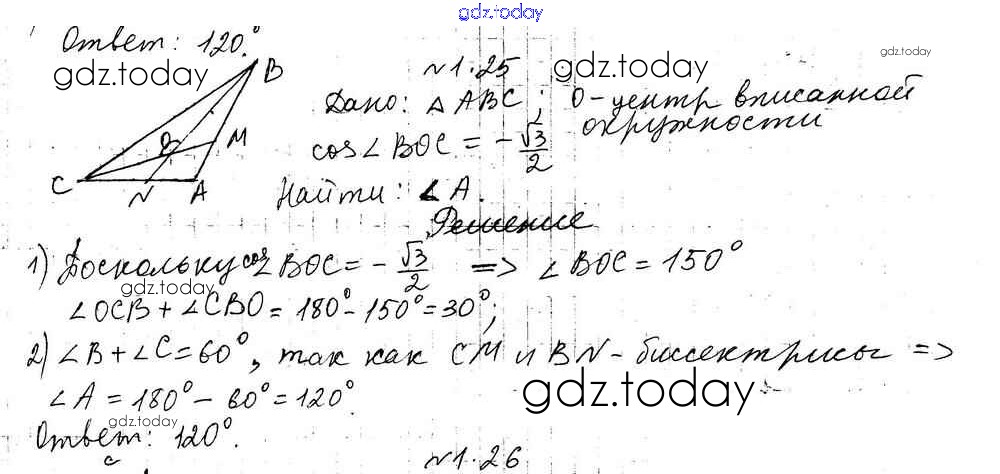 gdz.today
Ответ: 120.°
gdz.today
B
M
O
C
N
A
№1.25
gdz.today
gdz.today
Дано: △ABC; O-центр вписанной
окружности
cos∠BOC = -√3/2
Найти: ∠A.
Решение
1) Поскольку cos∠BOC = -√3/2 => ∠BOC = 150°
gdz.today
∠OCB + ∠CBO = 180° - 150° = 30°;
2) ∠B + ∠C = 60°, так как CM и BN - биссектрисы =>
∠A = 180° - 60° = 120°.
gdz.today
gdz.today
Ответ: 120°.
№1.26